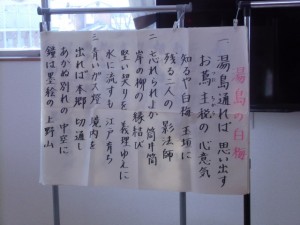 湯島の白梅
一 湯島通れば 思い出す
お蔦 主税の 心意気
知るや白梅 玉垣に
残る二人の 影法師
二 忘れられよか 筒井筒
岸の柳の 縁結び
堅い契りを 義理ゆえに
水に流すも 江戸育ち
三 青い瓦斯燈 境内を
出れば本郷 切通し
あかぬ別れの 中空に
鐘は墨絵の 上野山